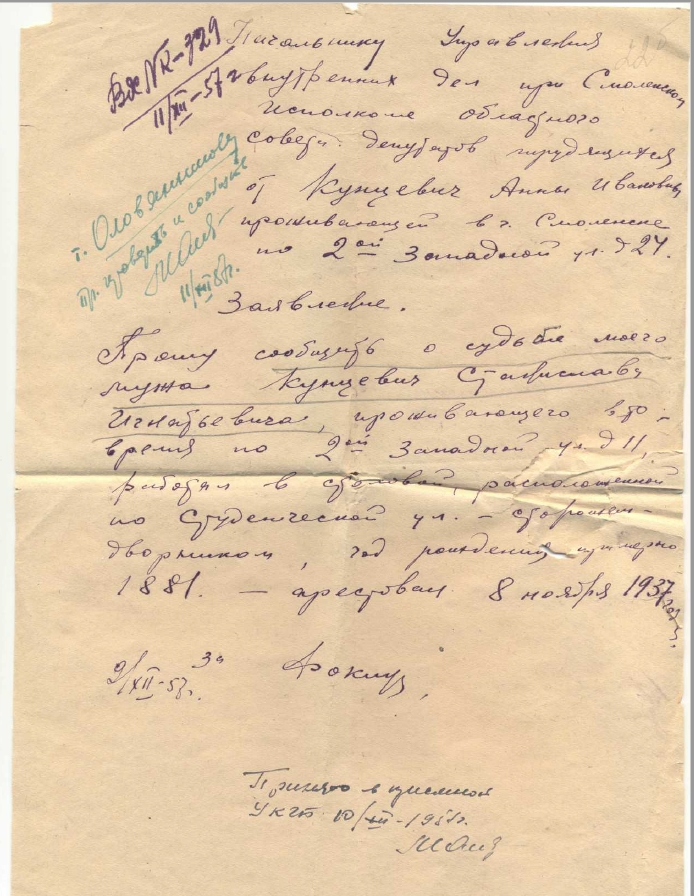 Вх № К-729
11/XII-57 г
Начальнику Управления
внутренних дел при Смоленском
исполкоме областного
совета депутатов трудящихся
от Кунцевич Анны Ивановны
проживающей в г. Смоленске
по 2ой Западной ул. д 27.
т. Оловянишникову
пр. проверить и сообщить
11/XII 57г.
Заявление.
Прошу сообщить о судьбе моего
мужа Кунцевич Станиславу
Игнатьевича, проживающего в то
время по 2ой Западной ул. д 11,
работал в столовой, расположенной
по Студенческой ул. – сторожем-
дворником, год рождения примерно
1881. – арестован 8 ноября 1937 году.
9/XII-57г. За
Принято в приемной
УКГБ 10/XII-1957г.